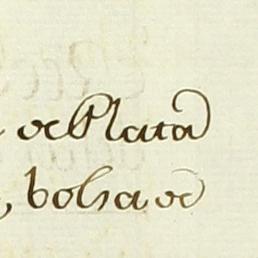 de Plata
, bolsa de